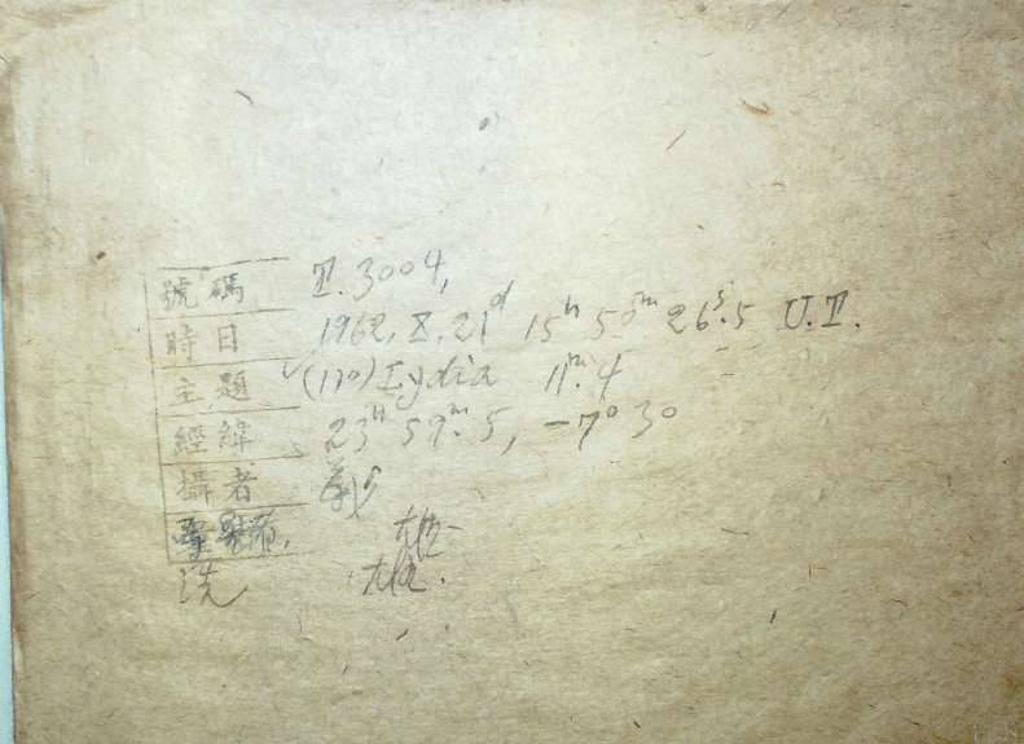 號碼 I. 3004,
時日 1962, X, 21ᵈ 15ʰ 50ᵐ 26ˢ.5 U.T.
主題 (110) Lydia 11ᵐ.4
經緯 23ʰ 57ᵐ.5, -7° 30
攝者
洗